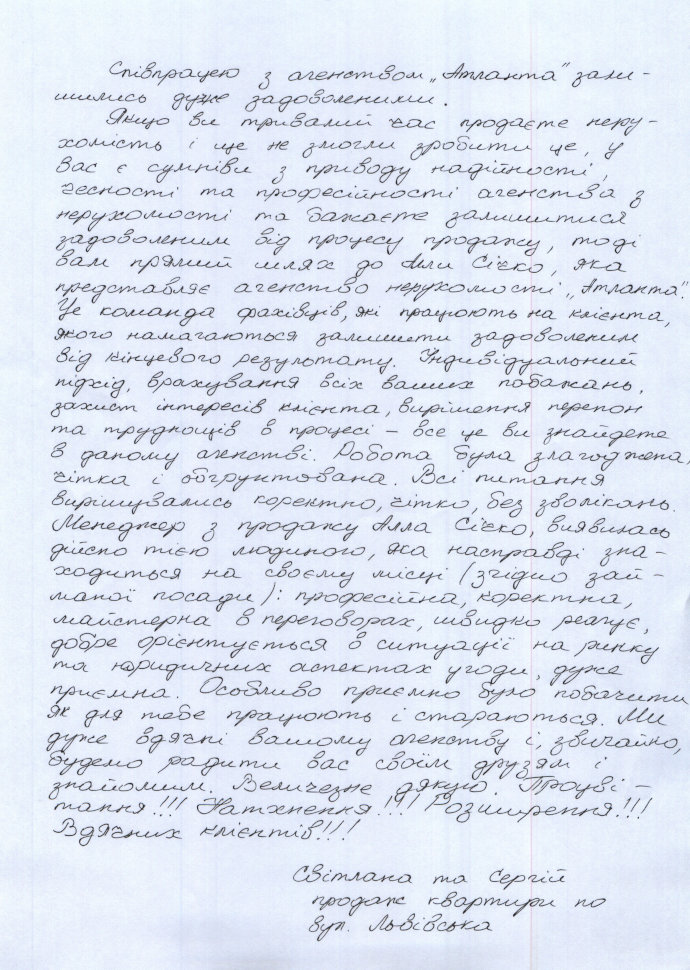 Співпрацею з агенством „Атланта" зали-
шились дуже задоволеними.
Якщо ви тривалий час продаєте неру-
хомість і ще не змогли зробити це, у
вас є сумніви з приводу надійності,
чесності та професійності агенства з
нерухомості та бажаєте залишитися
задоволеним від процесу продажу, тоді
вам прямий шлях до Али Січко, яка
представляє агенство нерухомості „Атланта".
Це команда фахівців, які працюють на клієнта,
якого намагаються залишити задоволеним
від кінцевого результату. Індивідуальний
підхід, врахування всіх ваших побажань,
захист інтересів клієнта, вирішення перепон
та труднощів в процесі – все це ви знайдете
в даному агенстві. Робота була злагоджена,
чітка і обгрунтована. Всі питання
вирішувались коректно, чітко, без зволікань.
Менеджер з продажу Алла Січко, виявилась
дійсно тією людиною, яка насправді зна-
ходиться на своєму місці (згідно зай-
маної посади): професійна, коректна,
майстерна в переговорах, швидко реагує,
добре орієнтується в ситуації на ринку
та юридичних аспектах угоди, дуже
приємна. Особливо приємно було побачити
як для тебе працюють і стараються. Ми
дуже вдячні вашому агенству і, звичайно,
будемо радити вас своїм друзям і
знайомим. Величезне дякую. Процві-
тання!!! Натхнення!!! Розширення!!!
Вдячних клієнтів!!!
Світлана та Сергій
продаж квартири по
вул. Львівська